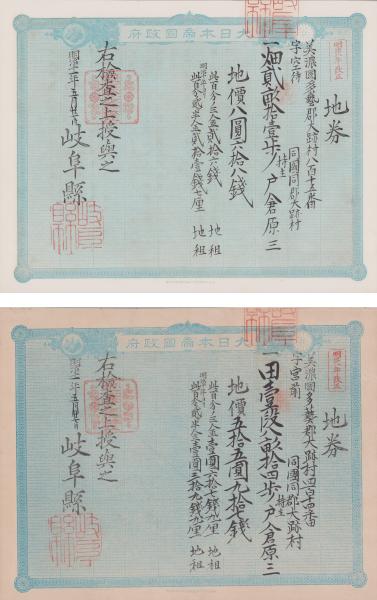 大日本帝國政府
明治九年改正
地券
美濃國多藝郡大跡村八百十五番
字宮待
同國同郡大跡村
一畑貳畝拾壹歩
持主 戸倉原三
地價八圓六拾八錢
此百分ノ三金貳拾六錢 地租
明治十年ヨリ
此百分ノ貳ヶ半金貳拾壹錢七厘 地租
右檢査之上授與之
明治十一年三月廿七日
岐阜縣
大日本帝國政府
明治九年改正
地券
美濃國多藝郡大跡村四百十四番
字宮前
同國同郡大跡村
一田壹段八畝拾四歩
持主 戸倉原三
地價五拾五圓九拾七錢
此百分ノ三金壹圓六拾七錢九厘 地租
明治十年ヨリ
此百分ノ貳ヶ半金壹圓三拾九錢九厘 地租
右檢査之上授與之
岐阜縣